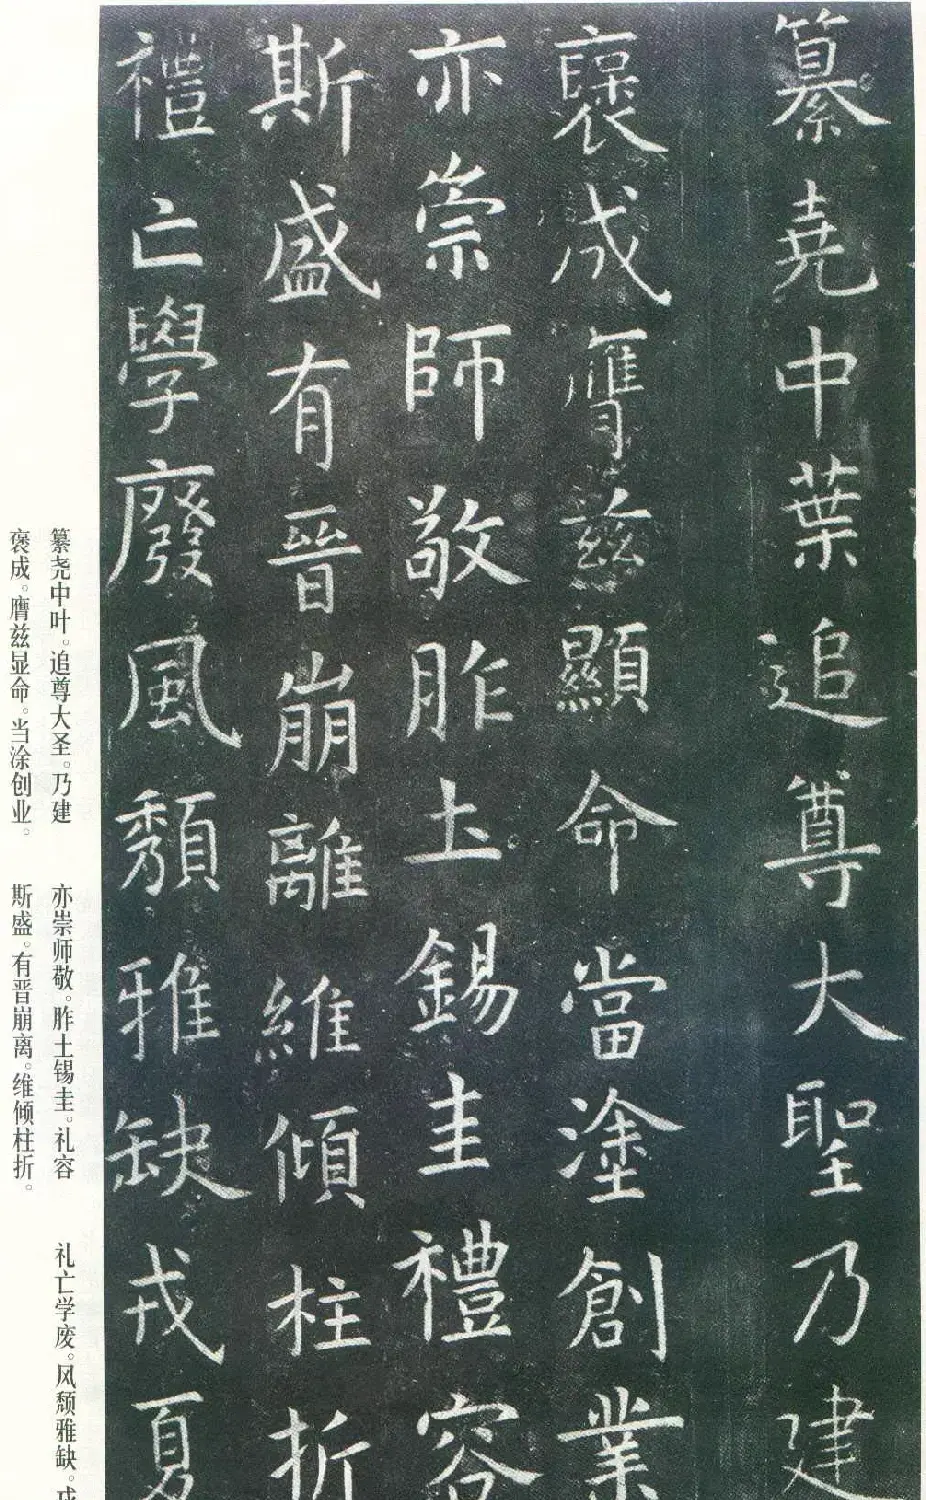 纂堯中葉追尊大聖乃建
襃成膺茲顯命當塗創業
亦崇師敬胙土錫圭禮容
斯盛有晉崩離維傾柱折
禮亡學廢風頹雅缺戎夏
纂尧中叶。追尊大圣。乃建
褒成。膺兹显命。当涂创业。
亦崇师敬。胙土锡圭。礼容
斯盛。有晋崩离。维倾柱折。
礼亡学废。风颓雅缺。戎